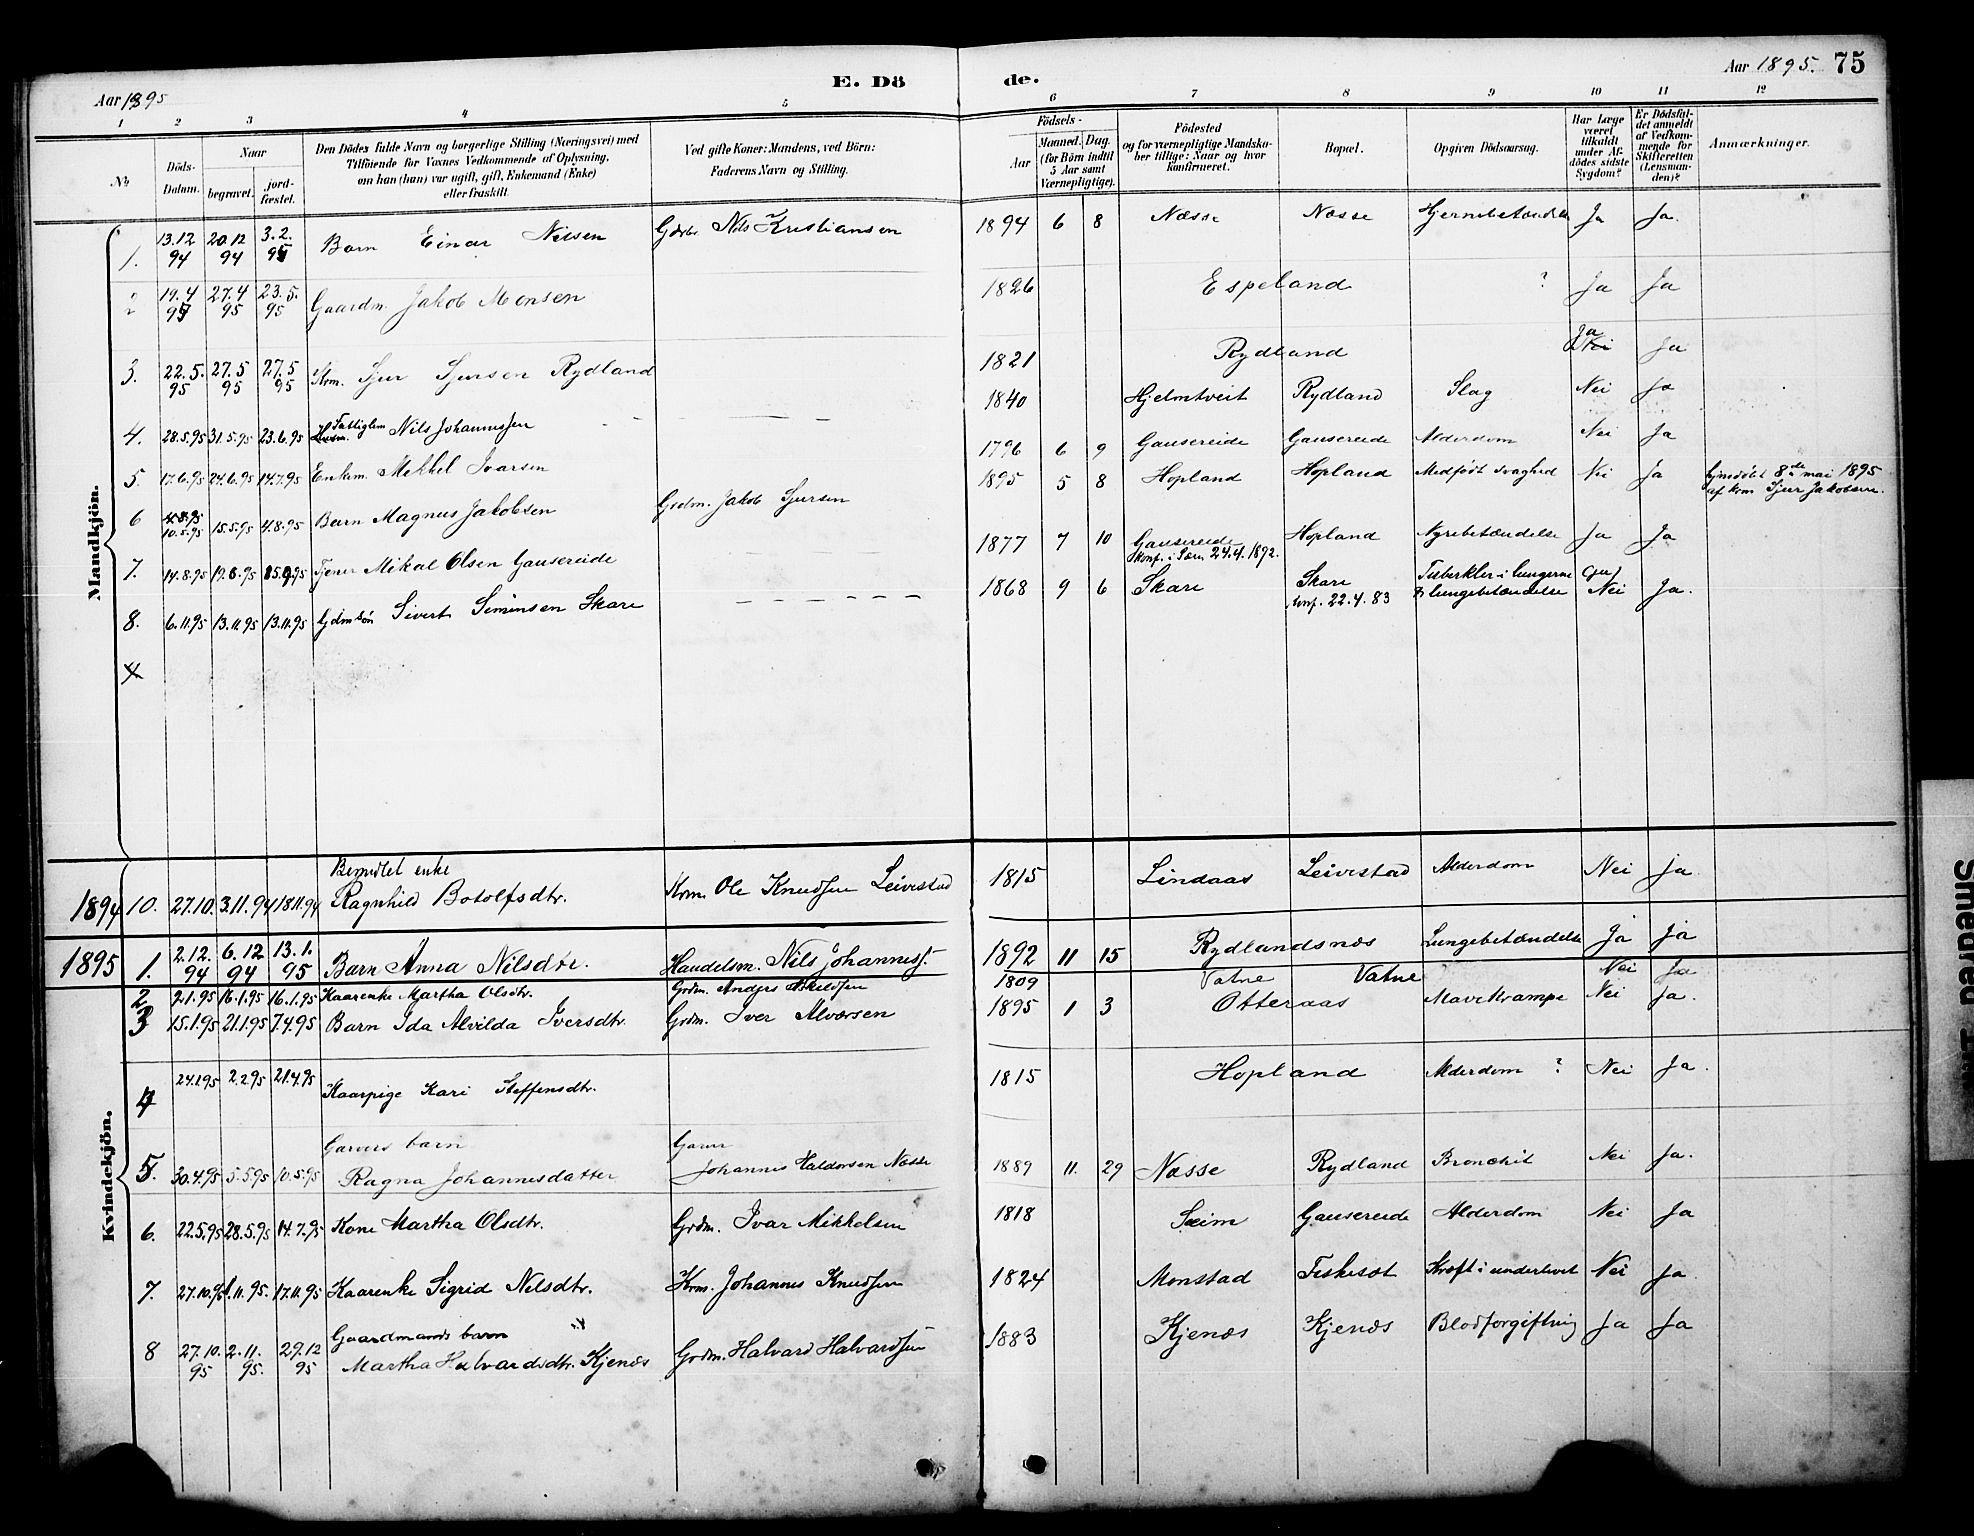 Aar 1895
E. Dö
de.
Aar 1895. 75
1 2 3 4 5 6 7 8 9 10 11 12
No
Döds-Datum.
Naar
begravet.
jord-fæstet.
Den Dödes fulde Navn og borgerlige Stilling (Næringsvei) med
Tilföiende for Voxnes Vedkommende af Oplysning,
om han (hun) var ugift, gift, Enkemand (Enke)
eller fraskilt.
Ved gifte Koner: Mandens, ved Börn:
Faderens Navn og Stilling.
Födsels-
Aar
Maaned. Dag.
(for Börn indtil
5 Aar samt
Værnepligtige).
Födested
og for værnepligtige Mandska-
ber tillige: Naar og hvor
konfirmeret.
Bopæl.
Opgiven Dödsaarsag.
Har Læge
været
tilkaldt
under Af-
dödes sidste
Sygdom?
Er Dödsfal-
det anmeldt
af Vedkom-
mende for
Skifteretten
(Lensman-
den)?
Anmærkninger.
Mandkjön.
1. 13.12 94 20 12 94 3.2. 95 Barn Einar Nilsen Nils Kristiansen 1894 6 8 Næsse Næsse Hjernebetændelse Ja Ja.
2 19.4 95 27.4 95 23.5. 95 Gaardm. Jakob Monsen 1826 Espeland ? Ja Ja
3. 22.5. 95 27.5 95 27.5 95 Krm. Sjur Sjursen Rydland 1821 Rydland Ja Nei Ja
4. 28.5.95 31.5.95 23.6.95 Husm. Fattiglem Nils Johannessen 1840 Hjelmtveit Rydland Slag Nei Ja
5. 17.6.95 24.6.95 14.7.95 Enkem. Mikkel Ivarsen 1796 6 9 Gausereide Gausereide Alderdom Nei Ja
6 10.5.95 15.5.95 4.8.95 Barn Magnus Jakobsen Grdm. Jakob Sjursen 1895 5 8 Hopland Hopland Medfödt svaghed Nei Ja hjemdöbt 8de mai 1895
af Krm Sjur Jakobsen.
7. 14.8.95 19.8.95 15.9.95 Tjener Mikal Olsen Gausereide 1877 7 10 Gausereide Hopland Nyrebetændelse Ja Ja
Konf. i Sæm 24.4.1892.
8. 6.11.95 13.11.95 13.11.95 Gdmsön Sivert Simonsen Skare 1868 9 6 Skare Skare Tuberkler i lungerne Nei Ja.
konf. 22.4.83 lungebetændelse
Kvindekjön.
Bygndlet enke
1894 10. 27.10. 3.11.94 18.11.94 Ragnhild Botolfsdtr. Krm. Ole Knudsen Leivestad 1815 Lindaas Leivestad Alderdom Nei ja
1895 1. 2.12. 94 6.12 94 13.1. 95 Barn Anna Nilsdtr. Handelsm. Nils Johanness. 1892 11 15 Rydlandsnæs Lungebetændelse Ja Ja
2 2.1.95 16.1.95 16.1.95 Kaarenke Martha Olsdtr. Grdm. Anders 1809 Vatne Vatne Nei Ja
3 15.1.95 21.1.95 7.4.95 Barn Ida Alvilda Iversdtr. Grdm. Iver Alværsen 1895 1 3 Otteraas Mavekrampe Nei Ja.
4 24.1.95 2.2.95 21.4.95 Kaarpige Kari Steffensdtr. 1815 Hopland Alderdom ? Nei Ja.
Garvers barn Garver
5. 30.4.95 5.5.95 10.5.95 Ragna Johannesdatter Johannes Haldorsen Næsse 1889 11. 29 Næsse Rydland Bronchit Nei Ja.
6. 22.5.95 28.5.95 14.7.95 Kone Martha Olsdtr. Grdm. Ivar Mikkelsen 1818 Sæim Gausereide Alderdom Nei Ja
7. 27.10.95 1.11.95. 17.11.95 Kaarenke Sigrid Nilsdtr. Krm. Johannes Knudsen 1824 Monstad Fiskesæt Kræft i underlivet Nei Ja
Gaardmands barn
8 27.10. 95 2.11. 95. 29.12 95 Martha Halvardsdtr. Kjenæs Grdm. Halvard Halvardsen 1883 Kjenæs Kjenæs Blodforgiftning Ja Ja